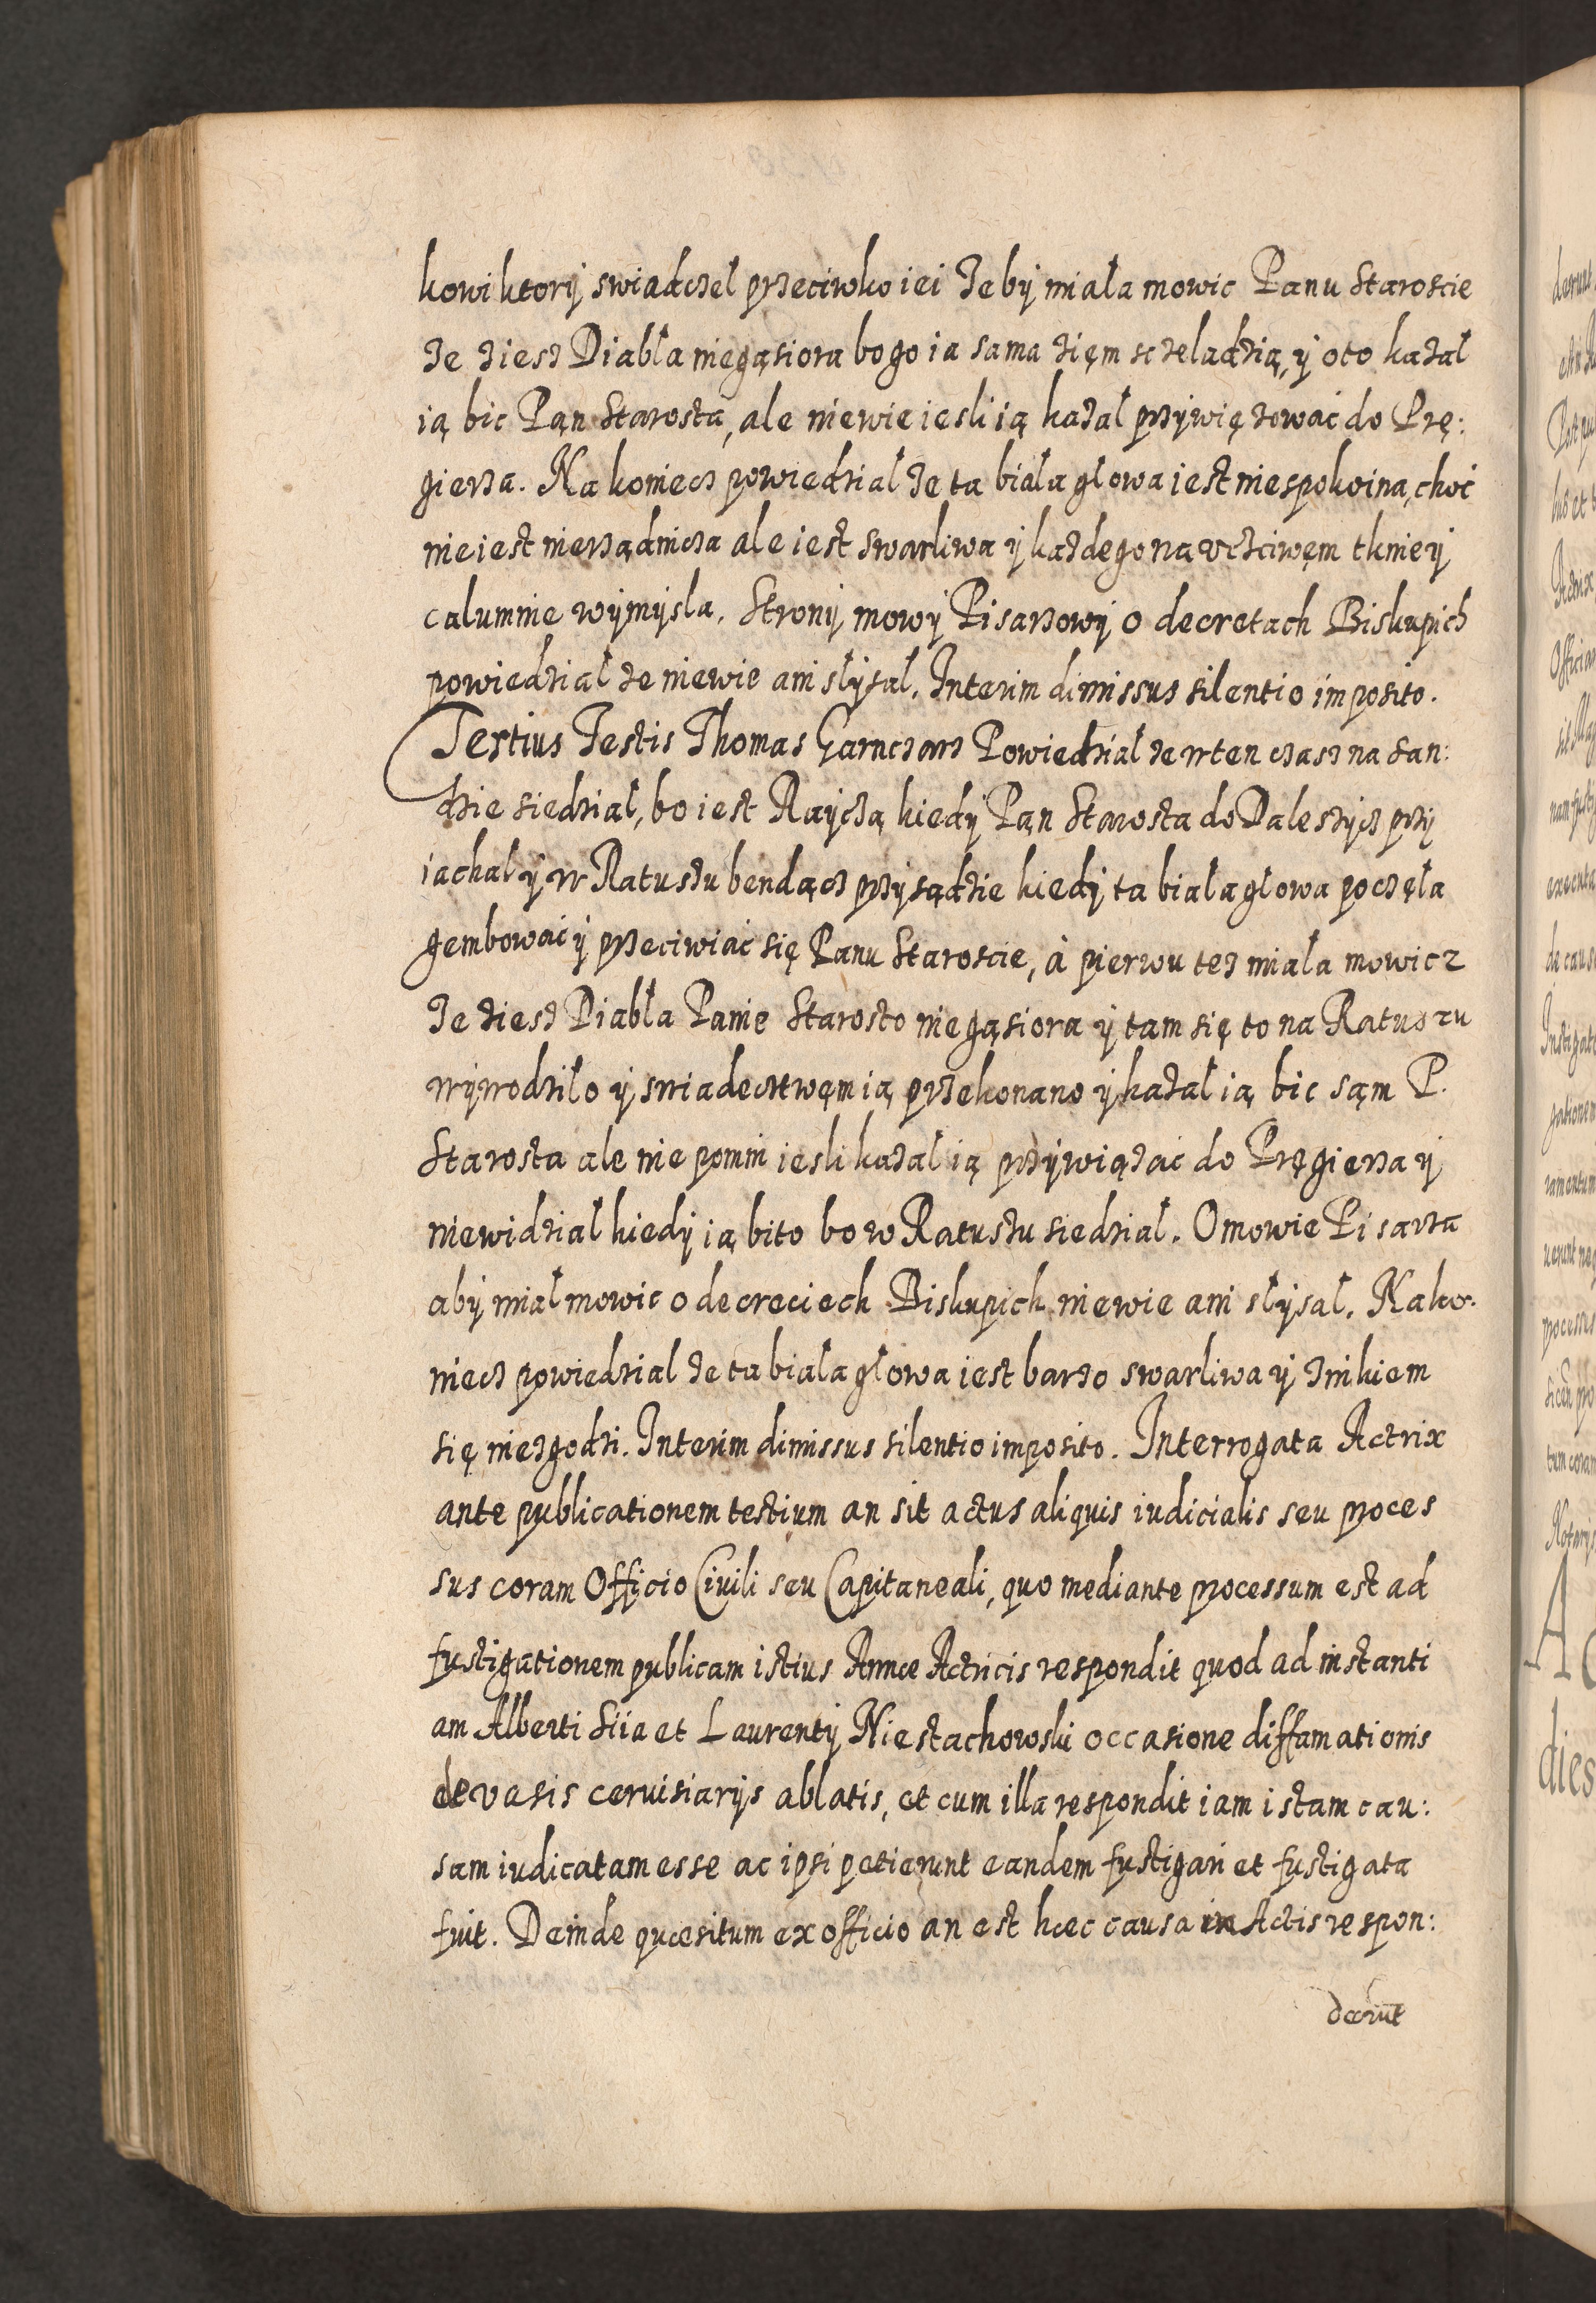 kowi ktory swiadczel przeciwko iei zeby miała mowic Panu Staroscie
ze ziesz Diabła niegąsiora bo go ia sama ziem sczeladzią, y oto kazał
ią bic Pąn Starosta, ale niewie iesli ią kazał przywięzowac do Prę:
gierza. Na koniecz powiedział ze ta biała głowa iest niespokoina, choc
nie iest nierządnicza ale iest swarliwa y kazdego na vcżciwęm tknie y
calumnie wymysla. Strony mowy Pisarzowy o decretach Biskupich
powiedział ze niewie ani słysał. Interim dimissus silentio imposito.
Tertius Testis Thomas Garnczarz Powiedział ze w ten czasz na San:
dzie siedział, bo iest Rayczą kiedy Pąn Starosta do Daleszycz przy
iachał y w Ratuszu bendącz przy sądzie kiedy ta biała głowa poczęła
gembowac y przeciwiac się Panu Staroscie, à pierwu tez miała mowicz
ze ziesz Diabła Panie Starosto niegąsiora y tam się to na Ratuszu
wywodziło y swiadecztwęm ią przekonano y kazał ią bic sąm P.
Starosta ale nie pomni iesli kazał ią przywiązac do Pręgierza y
niewidział kiedy ią bito bo w Ratuszu siedział. O mowie Pisarza
aby miał mowic o decreciech Biskupich niewie ani słysał. Na ko:
niecz powiedział ze ta biała głowa iest barzo swarliwa y znikiem
się niezgodzi. Interim dimissus silentio imposito. Interrogata Actrix
ante publicationem testium an sit actus aliquis iudicialis seu proces
sus coram Officio Ciuili seu Capitaneali, quo mediante processum est ad
fustigationem publicam istius Annæ Actricis respondit quod ad instanti
am Alberti Siia et Laurentÿ Niestachowski occasione diffamationis
de vasis ceruisiarÿs ablatis, et cum illa respondit iam istam cau:
sam iudicatam esse ac ipsi petierunt eandem fustigari et fustigata
fuit. Deinde quæsitum ex officio an est hæc causa in Actis respon:
derūt